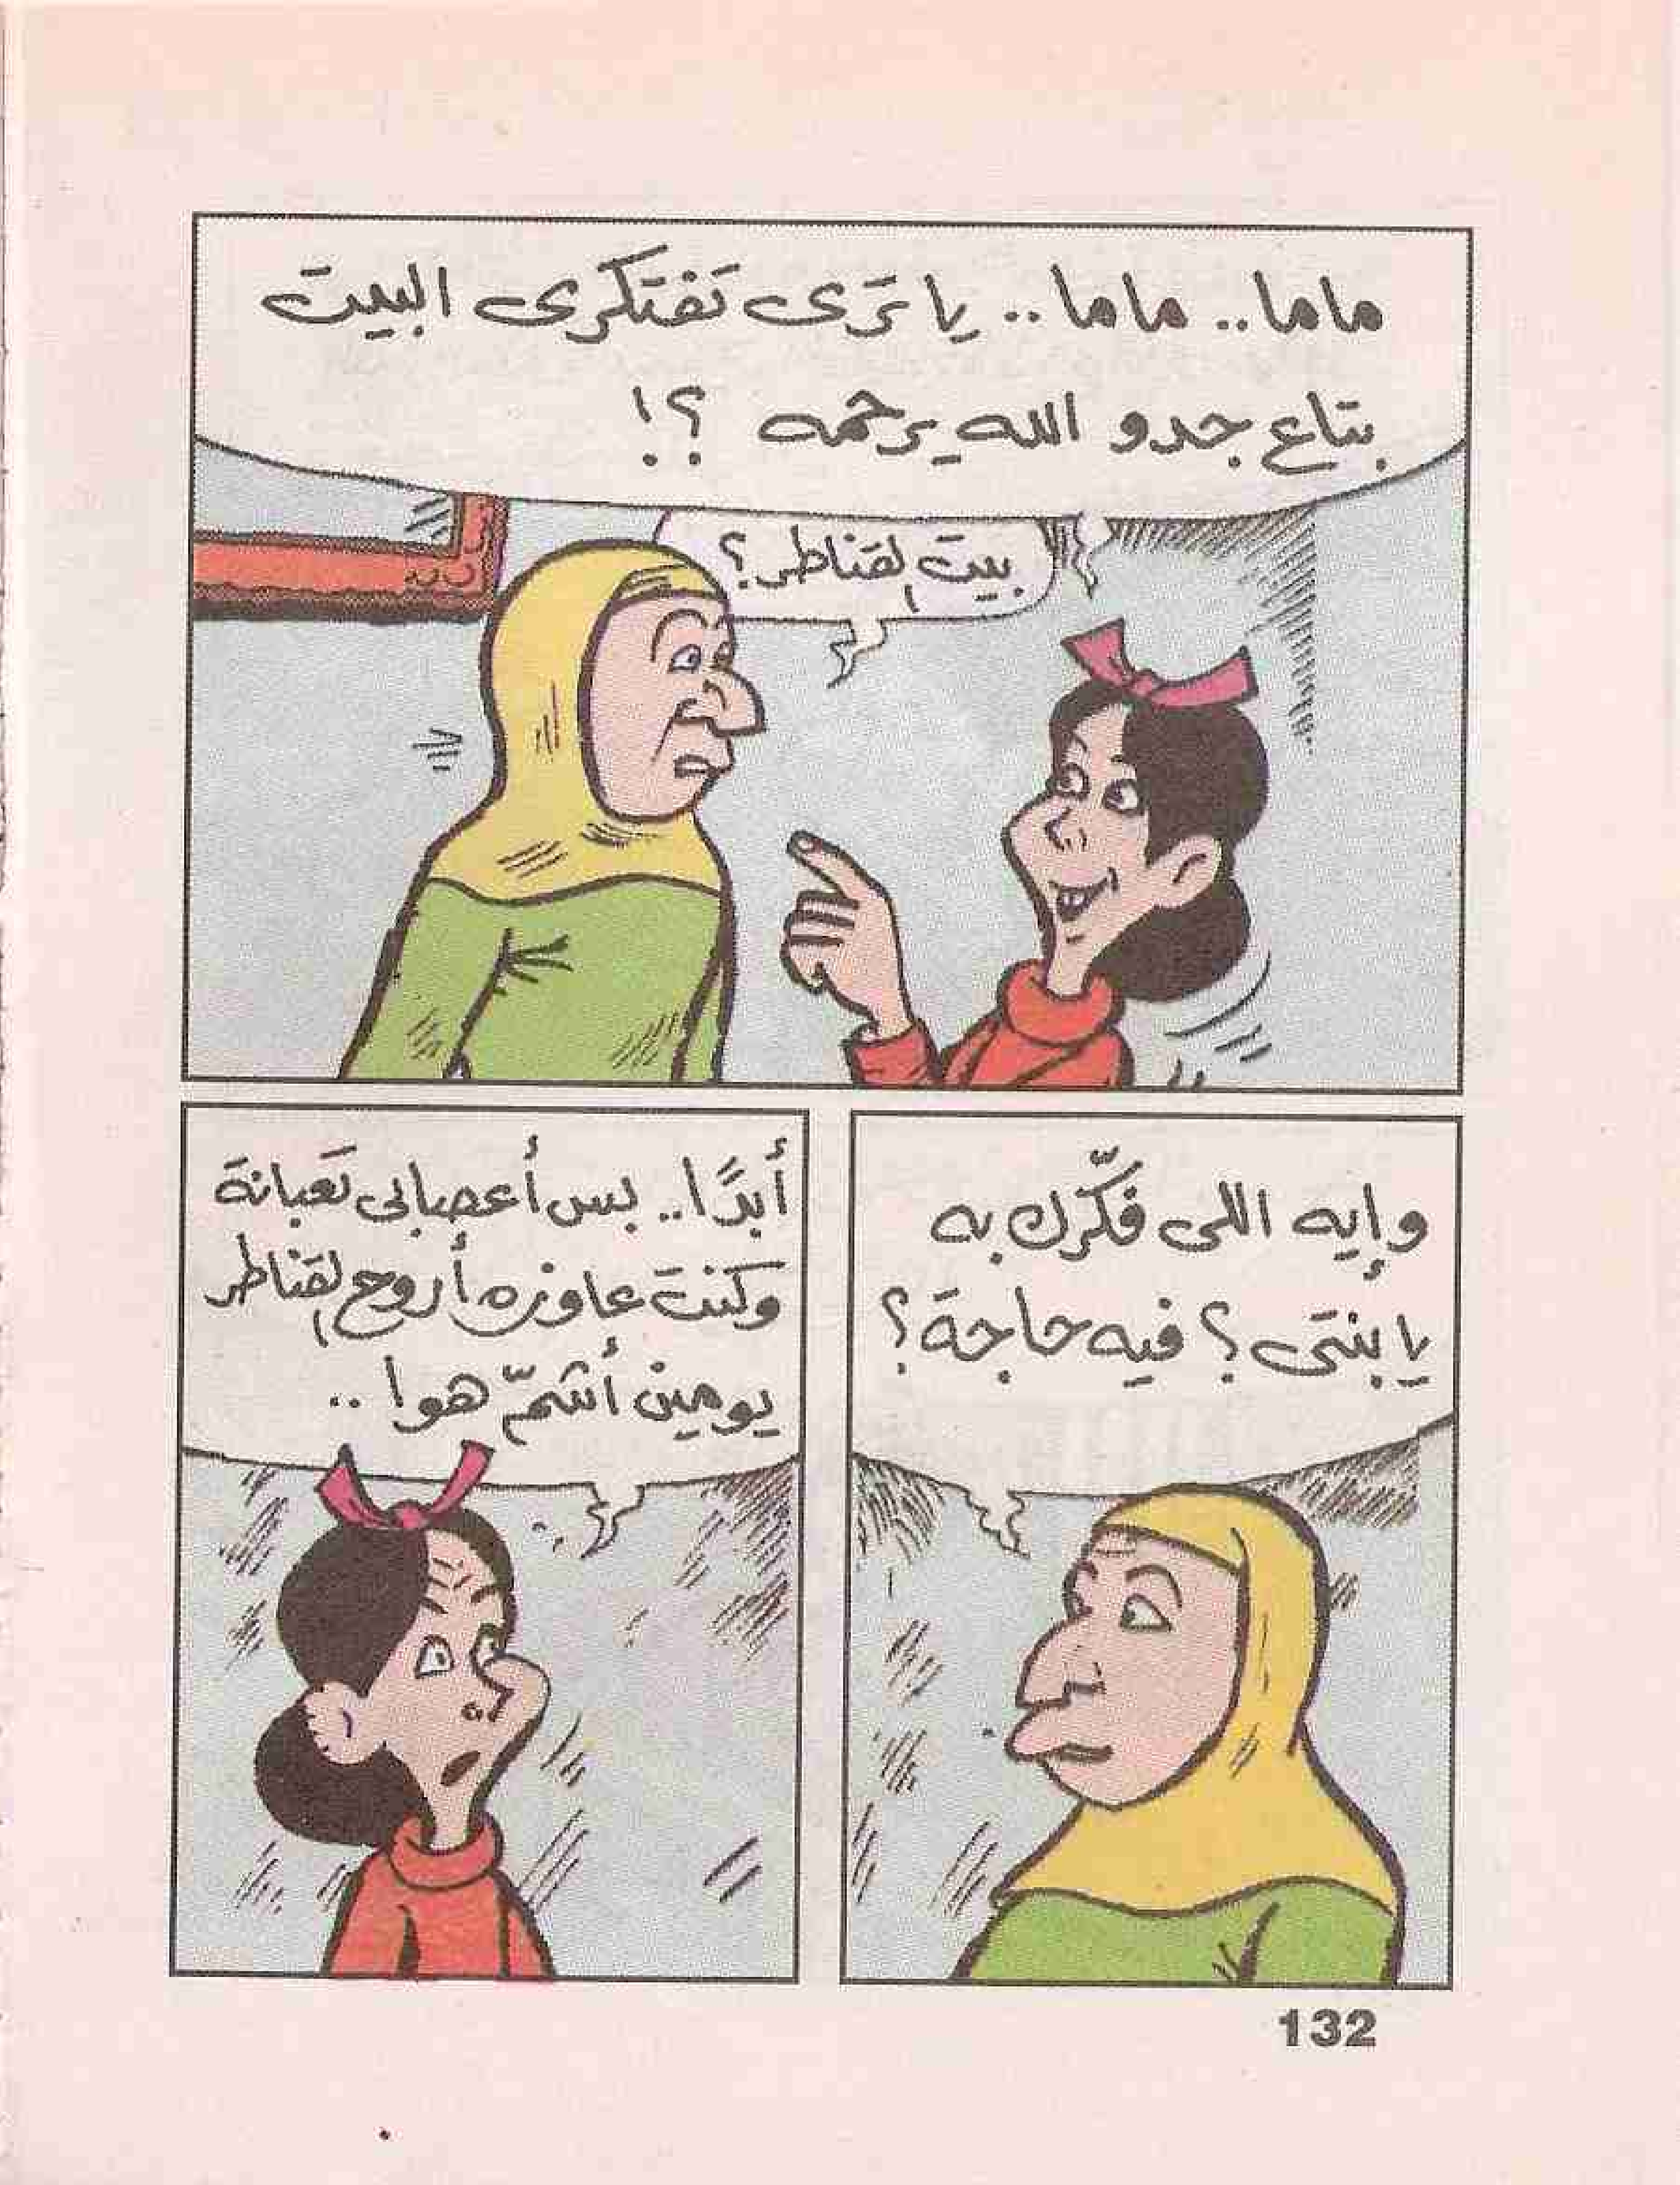 ماما.. ماما.. يا تَرى تَفتكرى البيت
بتاع جدو الله يرحمه ؟!
بيت القناطر؟
وإيه اللى فكّرك به
يا بنتى؟ فيه حاجة؟
أبدًا.. بس أعصابى تَعبانة
وكنت عاوزه أروح القناطر
يومين أشمّ هوا..
132